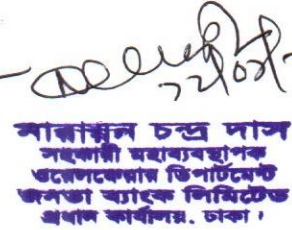 নারায়ন চন্দ্র দাস
সহকারী মহাব্যবস্থাপক
ওয়েলফেয়ার ডিপার্টমেন্ট
জনতা ব্যাংক লিমিটেড
প্রধান কার্যালয়, ঢাকা।